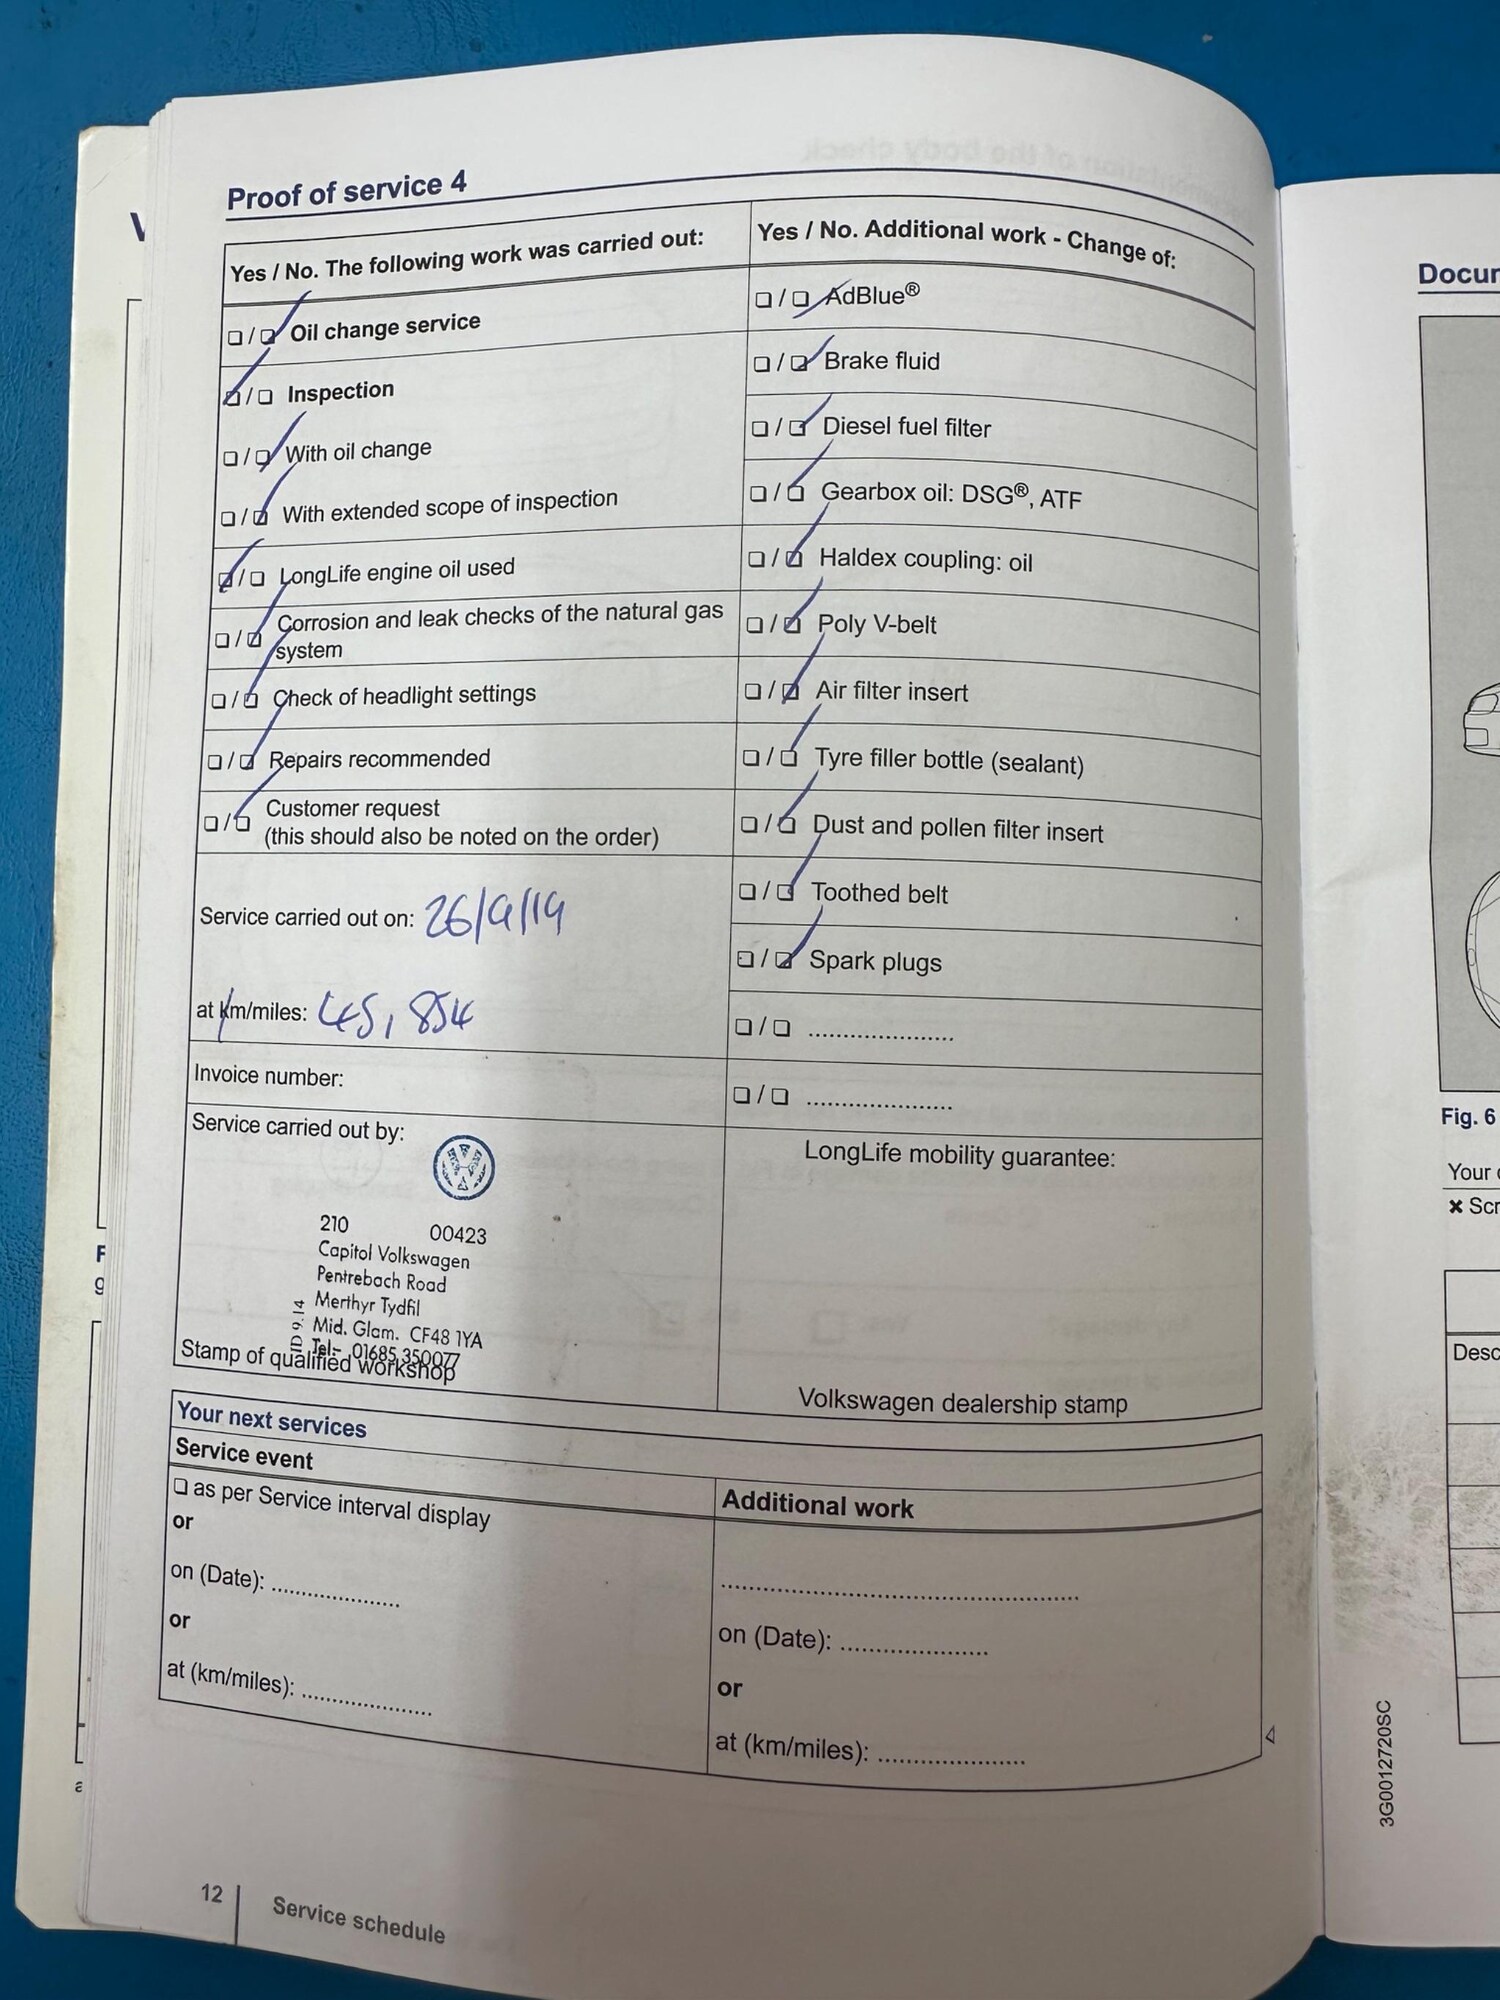 Proof of service 4
Yes / No. The following work was carried out:
❏ / ❏ Oil change service
❏ / ❏ Inspection
❏ / ❏ With oil change
❏ / ❏ With extended scope of inspection
❏ / ❏ LongLife engine oil used
❏ / ❏ Corrosion and leak checks of the natural gas
system
❏ / ❏ Check of headlight settings
❏ / ❏ Repairs recommended
❏ / ❏ Customer request
(this should also be noted on the order)
Service carried out on: 26/9/19
at km/miles: 45,854
Invoice number:
Service carried out by:
210 00423
Capitol Volkswagen
Pentrebach Road
Merthyr Tydfil
Mid. Glam. CF48 1YA
Tel:- 01685 350077
Stamp of qualified workshop
Yes / No. Additional work - Change of:
❏ / ❏ AdBlue®
❏ / ❏ Brake fluid
❏ / ❏ Diesel fuel filter
❏ / ❏ Gearbox oil: DSG®, ATF
❏ / ❏ Haldex coupling: oil
❏ / ❏ Poly V-belt
❏ / ❏ Air filter insert
❏ / ❏ Tyre filler bottle (sealant)
❏ / ❏ Dust and pollen filter insert
❏ / ❏ Toothed belt
❏ / ❏ Spark plugs
❏ / ❏ ......................
❏ / ❏ ......................
LongLife mobility guarantee:
Volkswagen dealership stamp
Your next services
Service event
❏ as per Service interval display
or
on (Date): ....................
or
at (km/miles): ....................
Additional work
......................................................
on (Date): ......................
or
at (km/miles): ......................
12 Service schedule
Docum
Fig. 6
Your
✖ Scr
Desc
3G0012720SC